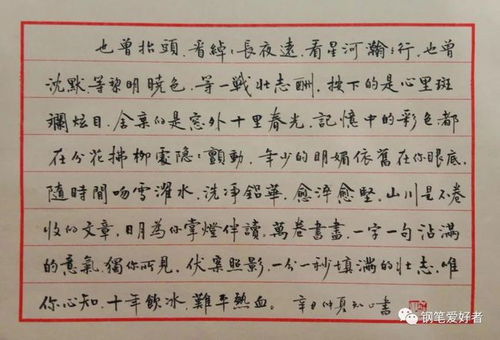 也曾抬頭.看綽々長夜遠.看星河瀚々行.也曾
沈默.等黎明曉色.等一戰壯志酬.按下的是心里斑
斕炫目.舍棄的是窓外十里春光.記憶中的彩色都
在分花拂柳處隱々顫動.年少的明媚依舊在你眼底.
隨時間吻雪濯水.洗凈鉛華.愈淬愈堅.山川是不卷
收的文章.日月為你掌燈伴讀.萬卷書畫.一字一句沾滿
的意氣.獨你所見.伏案照影.一分一秒填滿的壯志.唯
你心知.十年飲冰.難平熱血.辛丑 書
钢笔爱好者